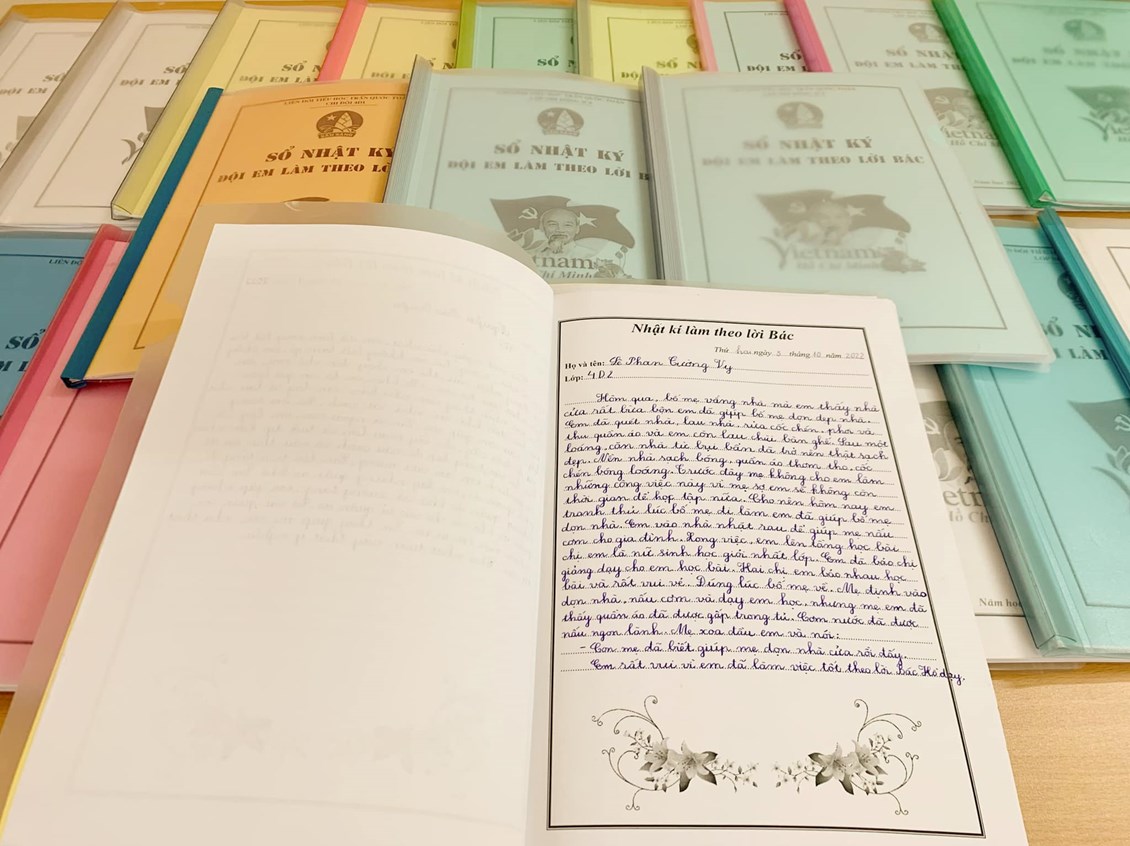 SỔ N
ĐỘI EM LÀM
SỔ
ĐỘI EM L
SỔ NHẬT
ĐỘI EM LÀM THE
LIÊN ĐỘI TIỂU HỌC TRẦN QUANG
SỔ NHẬT KÝ
ĐỘI EM LÀM THEO LỜ
SỔ NHẬT KÝ
ĐỘI EM LÀM THEO LỜI B
Vietnam
Hồ Chí Minh
SỔ NHẬT KÝ
ĐỘI EM LÀM THEO LỜI BÁC
Vietnam
Hồ Chí Minh
Nhật kí làm theo lời Bác
Thứ hai ngày 3 tháng 10 năm 2022
Họ và tên: Lê Phan Tường Vy
Lớp: 4D2
Hôm qua, bố mẹ vắng nhà mà em thấy nhà
cửa rất bừa bộn em đã giúp bố mẹ dọn dẹp nhà.
Em đã quét nhà, lau nhà, rửa cốc chén, phơi và
thu quần áo và em còn lau chùi bàn ghế. Sau một
loáng, căn nhà từ bụi bẩn đã trở nên thật sạch
đẹp. Nền nhà sạch bóng, quần áo thơm tho, cốc
chén bóng loáng. Trước đây mẹ không cho em làm
những công việc này vì mẹ sợ em sẽ không còn
thời gian để học tập nữa. Cho nên hôm nay em
tranh thủ lúc bố mẹ đi làm em đã giúp bố mẹ
dọn nhà. Em vào nhà nhặt rau để giúp mẹ nấu
cơm cho gia đình. Xong việc, em lên tầng học bài
chị em là nữ sinh học giỏi nhất lớp. Em đã bảo chị
giảng dạy cho em học bài. Hai chị em bảo nhau học
bài và rất vui vẻ. Đúng lúc bố mẹ về. Mẹ định vào
dọn nhà, nấu cơm và dạy em học, nhưng mẹ em đã
thấy quần áo đã được gấp trong tủ. Cơm nước đã được
nấu ngon lành. Mẹ xoa đầu em và nói:
- Con mẹ đã biết giúp mẹ dọn nhà cửa rồi đấy.
Em rất vui vì em đã làm việc tốt theo lời Bác Hồ dạy.